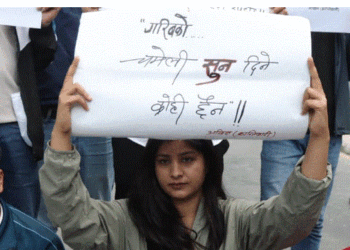 "गरिबको...
चमेली सुन दिने
कोही छैन"!!